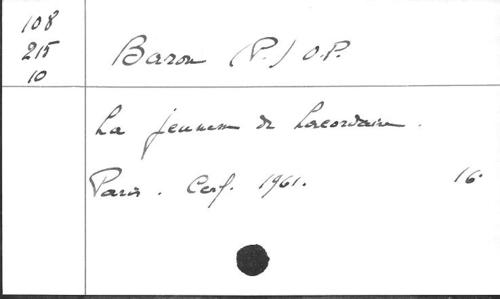 108
215
10
Baron (P.) O.P.
La jeunesse de Lacordaire.
Paris. Cerf. 1961. 16°